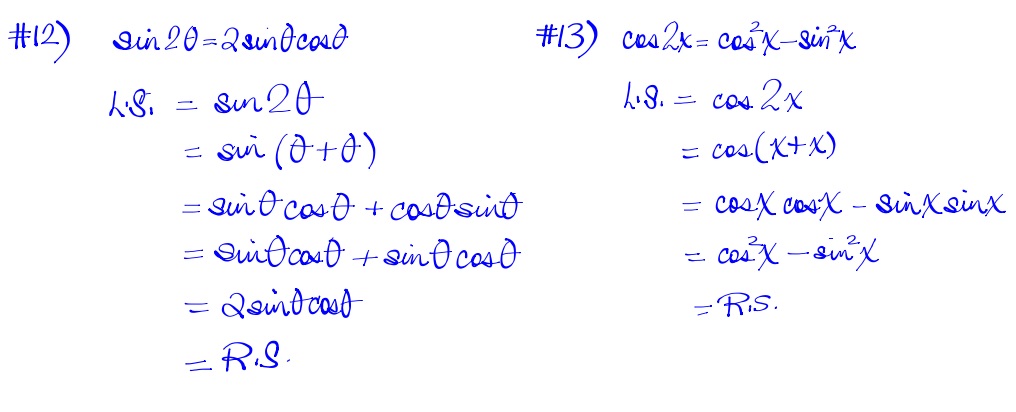 #12) sin2θ=2sinθcosθ
L.S. = sin2θ
= sin(θ+θ)
= sinθcosθ + cosθsinθ
= sinθcosθ + sinθcosθ
= 2sinθcosθ
= R.S.
#13) cos2x = cos²x - sin²x
L.S. = cos2x
= cos(x+x)
= cosx cosx - sinx sinx
= cos²x - sin²x
= R.S.